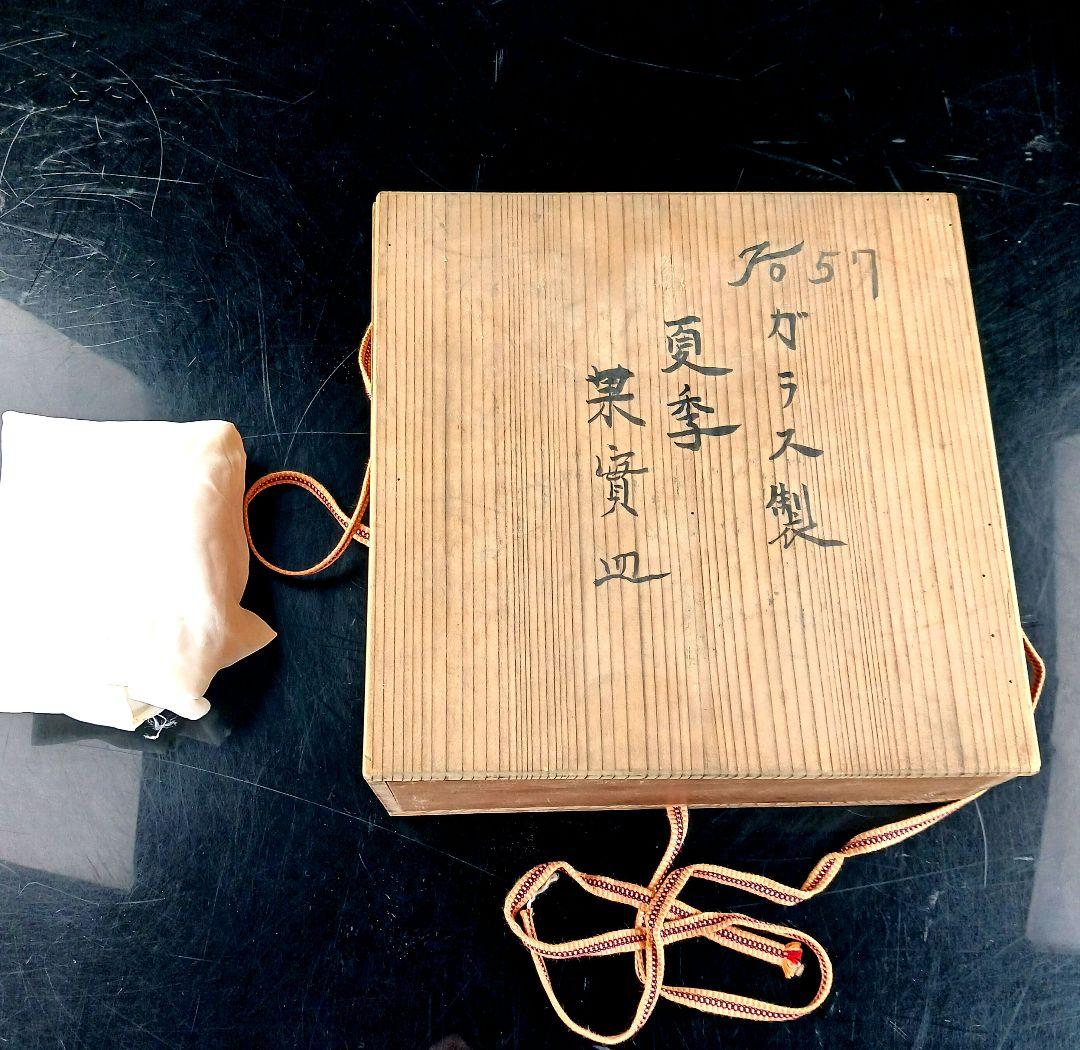 No 57
ガラス製
夏季
菓實皿